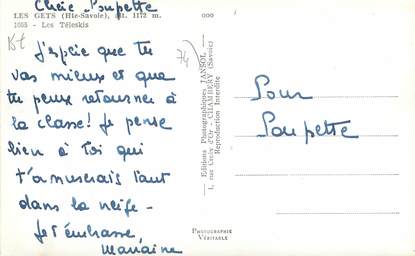 Chère Poupette
LES GETS (Hte-Savoie), alt. 1172 m.
1055 - Les Téleskis
J'espère que tu
vas mieux et que
tu peux retourner à
la classe! Je pense
bien à toi qui
t'amuserais tant
dans la neige -
Je t'embrasse,
74
Editions Photographiques JANSOL
1, rue Croix d'Or - CHAMBÉRY (Savoie)
Reproduction Interdite
PHOTOGRAPHIE
VÉRITABLE
Pour
Poupette